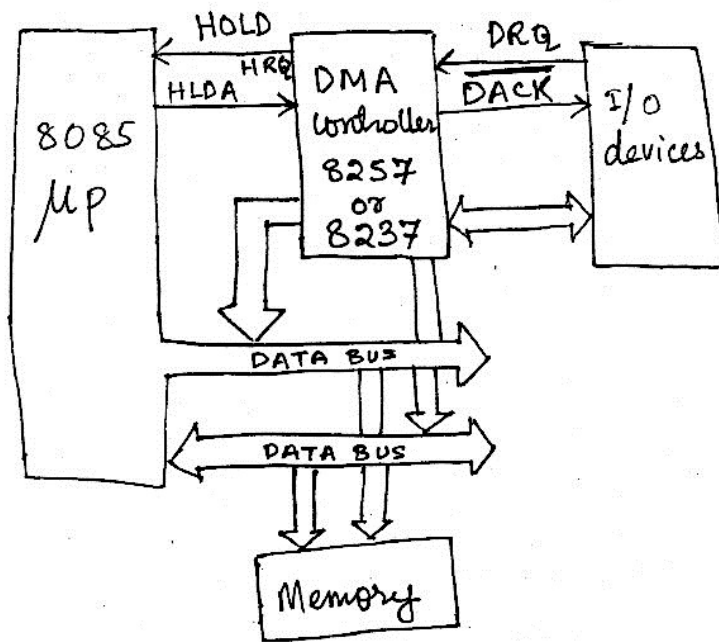 HOLD
HRQ
HLDA
8085
μP
DMA
controller
8257
or
8237
DRQ
DACK
I/O
devices
DATA BUS
DATA BUS
Memory